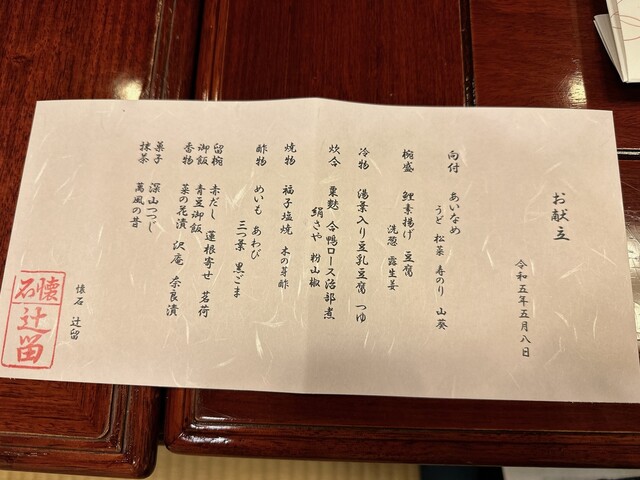 お献立
令和五年五月八日
向付 あいなめ
うど 松菜 寿のり 山葵
椀盛 鯉素揚げ 豆腐
洗葱 露生姜
冷物 湯葉入り豆乳豆腐 つゆ
炊合 粟麩 合鴨ロース治部煮
絹さや 粉山椒
焼物 福子塩焼 木の芽酢
酢物 めいも あわび
三つ葉 黒ごま
留椀 赤だし 蓮根寄せ 茗荷
御飯 青豆御飯
香物 菜の花漬 沢庵 奈良漬
菓子 深山つつじ
抹茶 萬風の昔
懐石 辻留
懐石
辻留